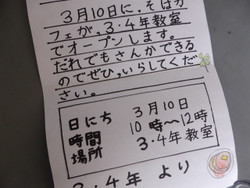 3月10日に、そばカ
フェが、3・4年教室
でオープンします。
だれでもさんかできる
のでぜひ、いらしてくだ
さい。
日にち 3月10日
時間 10時〜12時
場所 3・4年教室
3・4年より